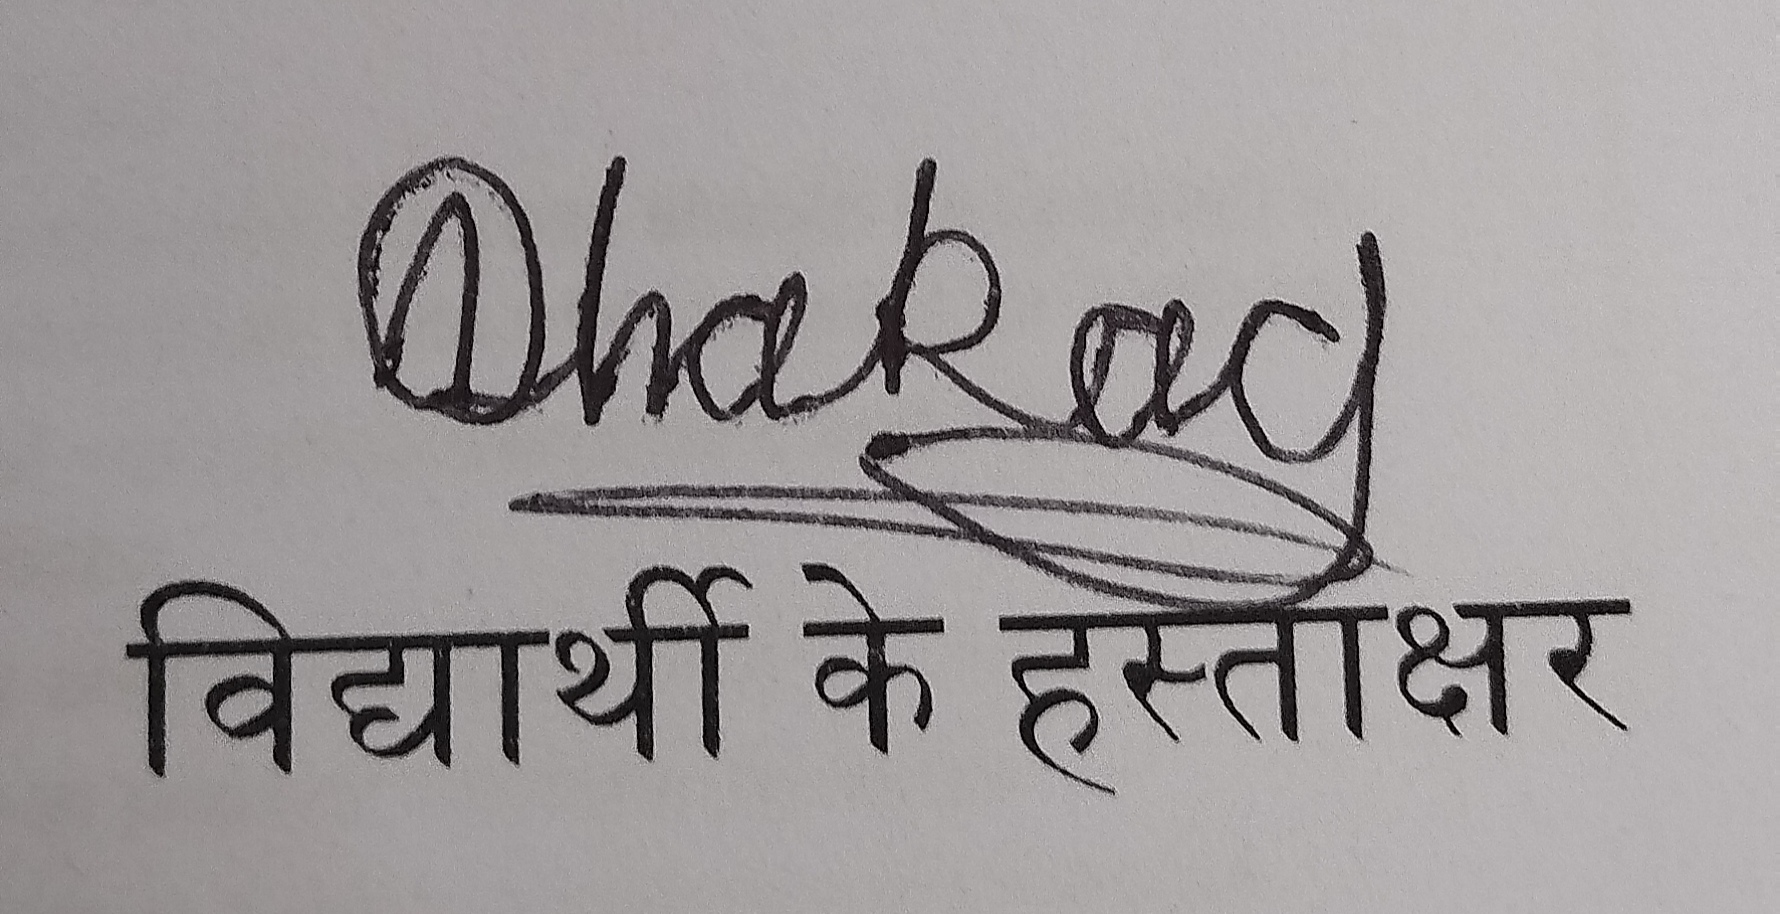 Dharay
विद्यार्थी के हस्ताक्षर